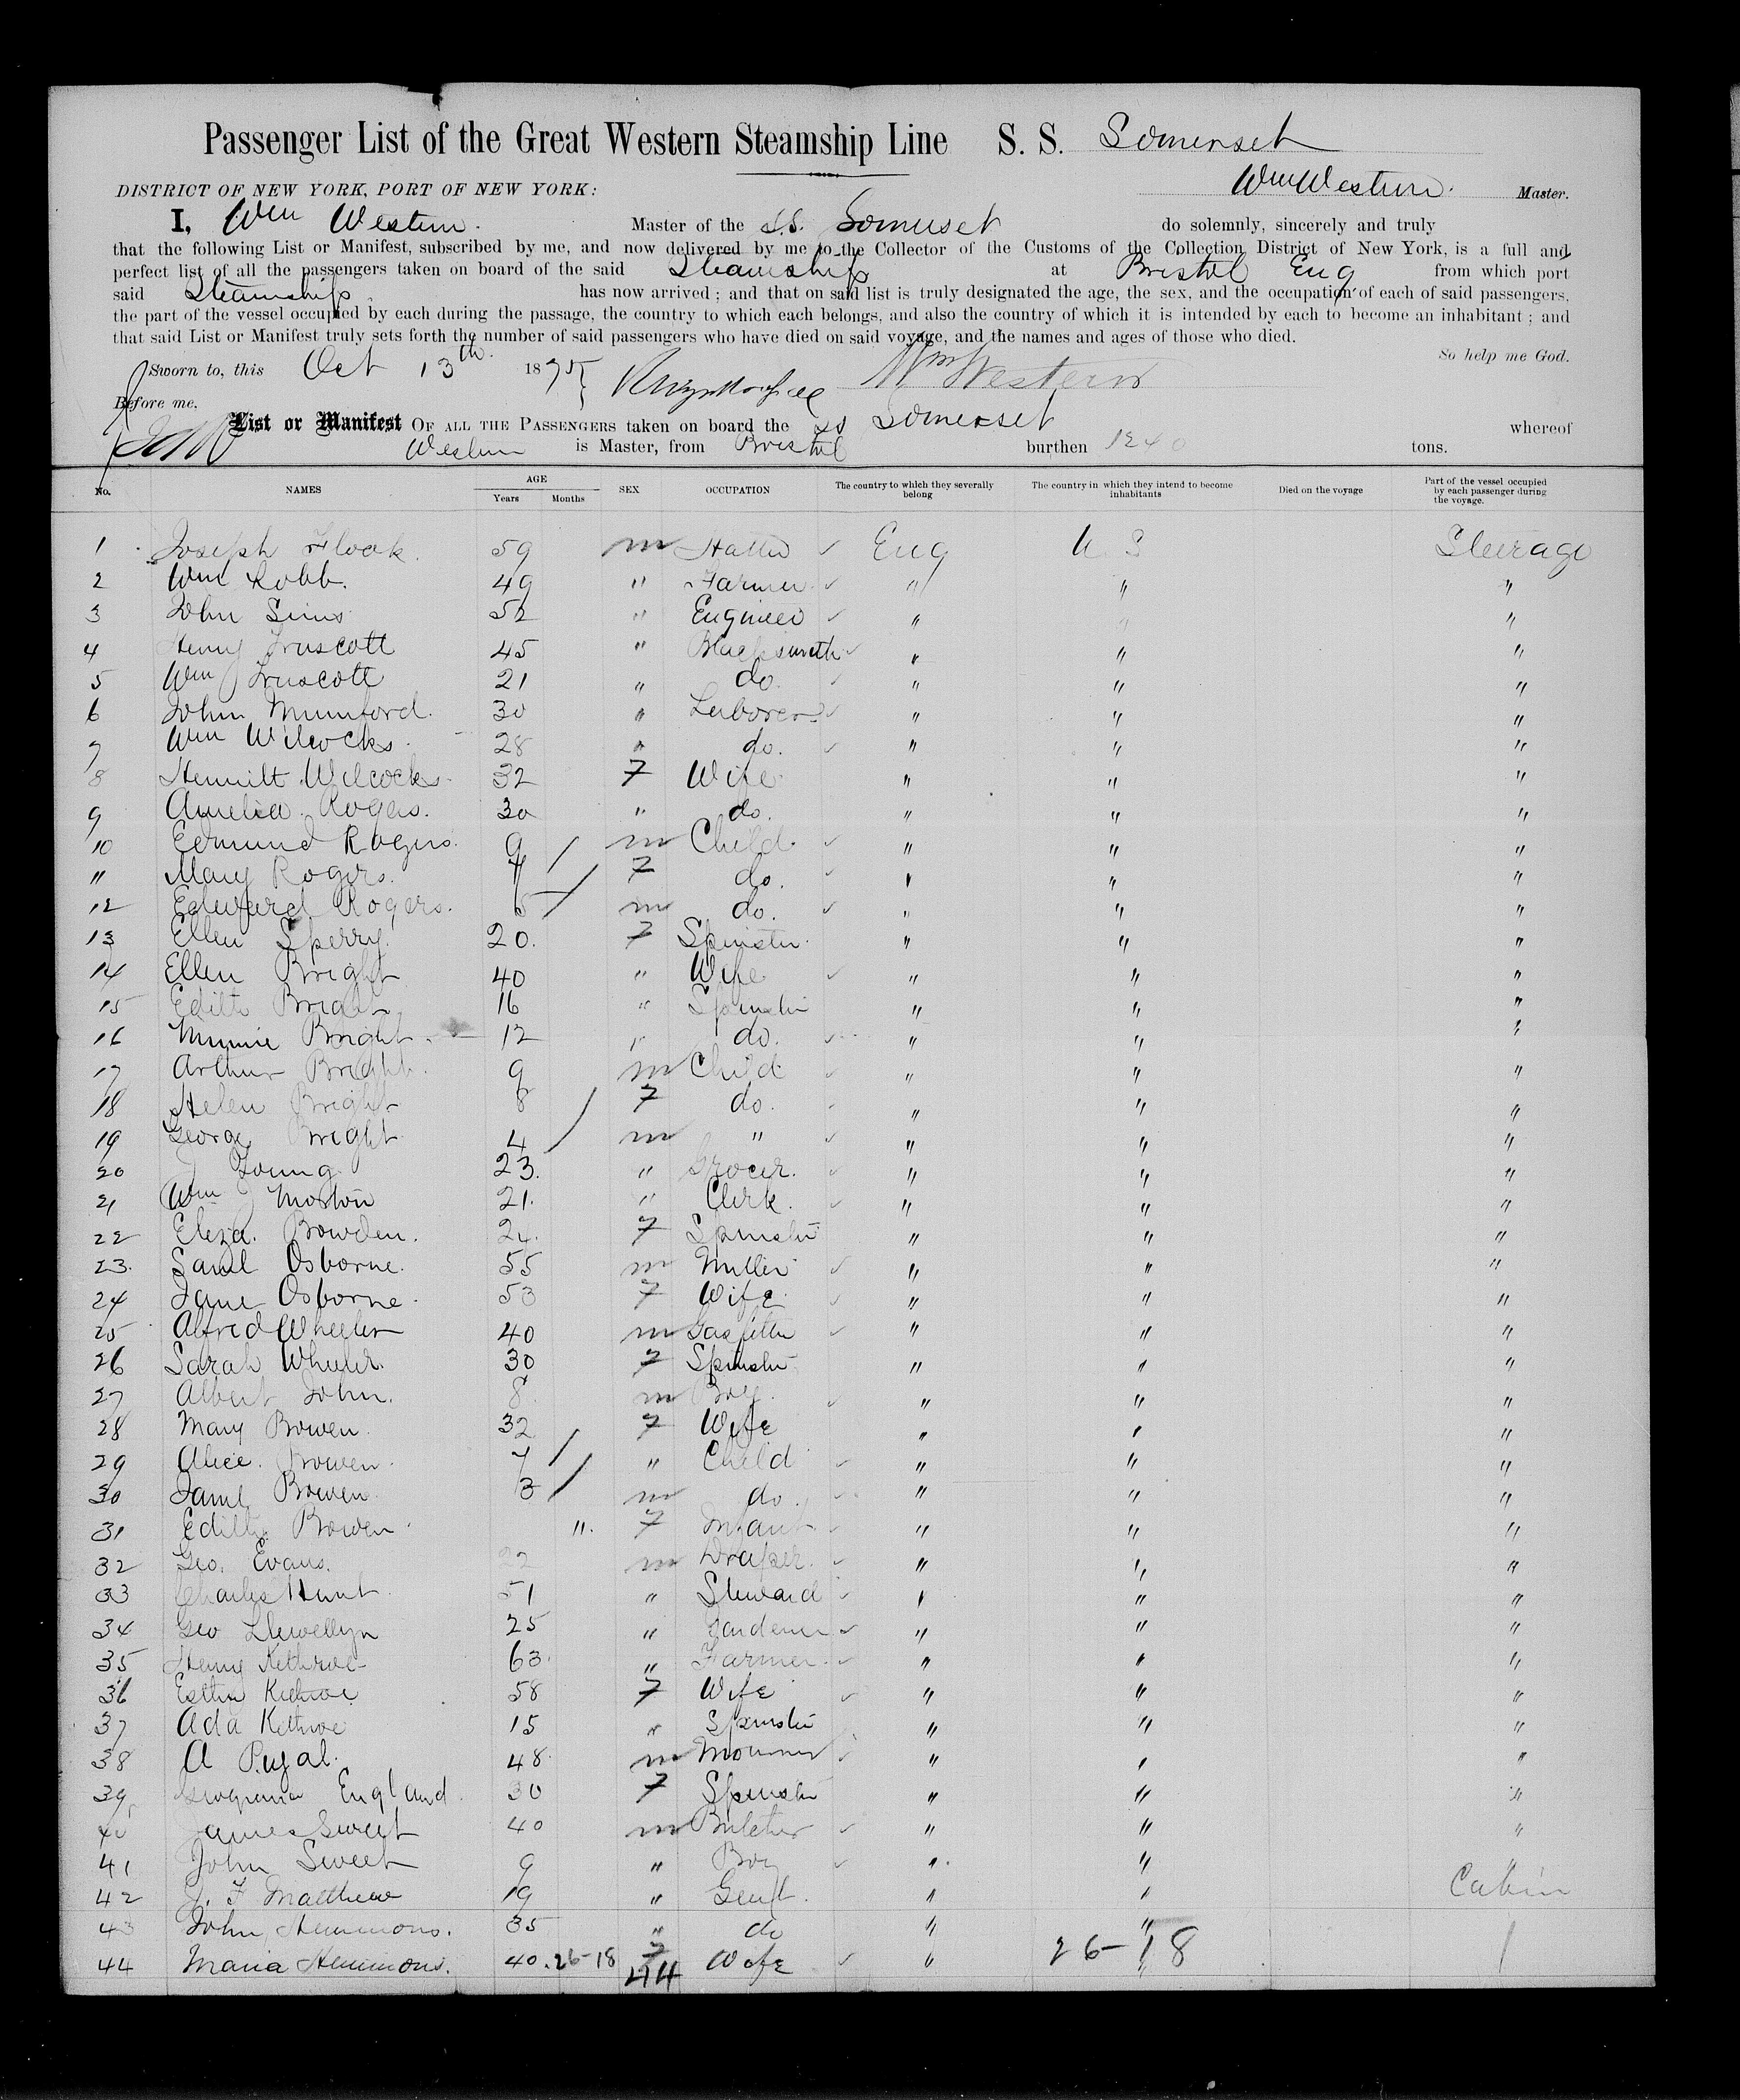 Passenger List of the Great Western Steamship Line S. S. Somerset
DISTRICT OF NEW YORK, PORT OF NEW YORK: Wm Western. Master.
I, Wm Western. Master of the S.S. Somerset do solemnly, sincerely and truly
that the following List or Manifest, subscribed by me, and now delivered by me to the Collector of the Customs of the Collection District of New York, is a full and
perfect list of all the passengers taken on board of the said Steamship at Bristol Eng from which port
said Steamship has now arrived ; and that on said list is truly designated the age, the sex, and the occupation of each of said passengers,
the part of the vessel occupied by each during the passage, the country to which each belongs, and also the country of which it is intended by each to become an inhabitant ; and
that said List or Manifest truly sets forth the number of said passengers who have died on said voyage, and the names and ages of those who died.
So help me God.
Sworn to, this Oct 13th. 1875 Wm Western
Before me.
List or Manifest OF ALL THE PASSENGERS taken on board the SS Somerset whereof
Western is Master, from Bristol burthen 1240 tons.
No. NAMES AGE Years Months SEX OCCUPATION The country to which they severally belong The country in which they intend to become inhabitants Died on the voyage Part of the vessel occupied by each passenger during the voyage.
1 Joseph Flook 59 m Hatter ✓ Eng U S Steerage
2 Wm Robb. 49 " Farmer ✓ " " "
3 John Sims 52 " Engineer ✓ " " "
4 Henry Truscott 45 " Blacksmith ✓ " " "
5 Wm Truscott 21 " do. ✓ " " "
6 John Mumford. 30 " Laborer ✓ " " "
7 Wm Wilcocks. 28 " do. ✓ " " "
8 Wilcocks 32 F Wife " " "
9 Amelia Rogers. 30 " do. " " "
10 Edmund Rogers. 9 / m Child ✓ " " "
" Mary Rogers. 7 / F do. " " "
12 Edward Rogers. 5 / m do. ✓ " " "
13 Ellen Sperry. 20. F Spinster. " " "
14 Ellen Bright 40 " Wife ✓ " " "
15 Edith Bright 16 " Spinster " " "
16 Minnie Bright 12 " do. ✓ " " "
17 Arthur Bright. 9 m Child ✓ " " "
18 Helen Bright 8 / F do. ✓ " " "
19 George Bright 4 / m " ✓ " " "
20 J Young 23. " Grocer. ✓ " " "
21 Wm J Morton 21. " Clerk. ✓ " " "
22 Eliza. Bowden. 24. F Spinster " " "
23. Saml Osborne. 55 m Miller ✓ " " "
24 Jane Osborne. 53 F Wife. ✓ " " "
25 Alfred Wheeler 40 m Gasfitter ✓ " " "
26 Sarah Wheeler. 30 F Spinster " " "
27 Albert John. 8. m Boy. ✓ " " "
28 Mary Bowen. 32 F Wife " " "
29 Alice. Bowen. 7 / " Child ✓ " " "
30 Bowen. 3 / m do. ✓ " " "
31 Edith Bowen. 11. F Infant ✓ " " "
32 Geo. Evans. 22 m Draper. ✓ " " "
33 Charles Hunt. 51 " Steward ✓ " " "
34 Geo Llewellyn 25 " Gardener ✓ " " "
35 Henry Kethroe 63. " Farmer. ✓ " " "
36 Esther Kethroe 58 F Wife ✓ " " "
37 Ada Kethroe 15 " Spinster " " "
38 A 48. m ✓ " " "
39 Georgiana England. 30 F Spinster " " "
40 James Sweet 40 m Butcher ✓ " " "
41 John Sweet 9 " Boy ✓ " " "
42 J. F Matthew 19 " Gent. " " Cabin
43 John Hemmons. 35 " do " "
44 Maria Hemmons. 40. 26-18 F Wife ✓ " " |
44 26-18